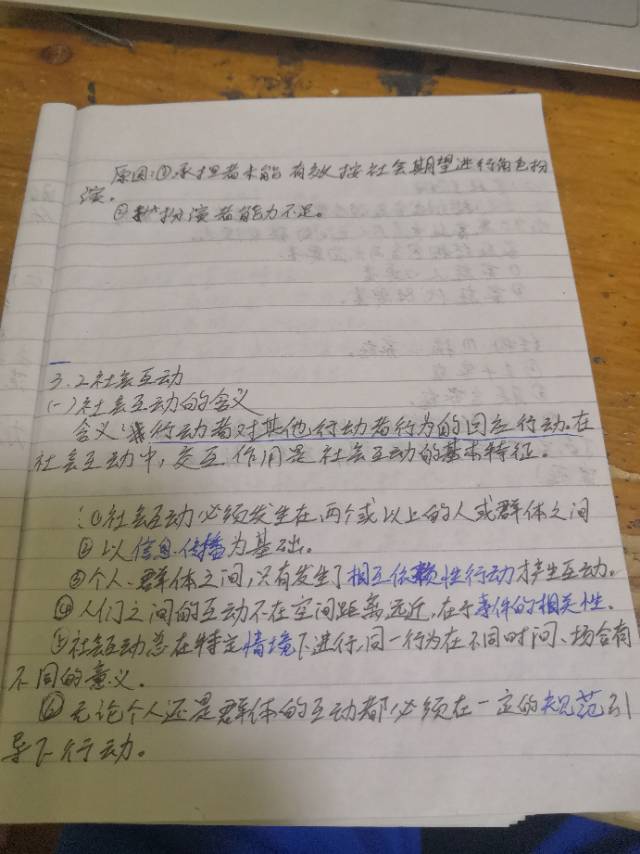 原因:①承担者未能有效按社会期望进行角色扮
演。
②扮演者能力不足。
3.2社会互动
(一)社会互动的含义
含义:行动者对其他行动者行为的回应行动。在
社会互动中,交互作用是社会互动的基本特征。
①社会互动必须发生在两个或以上的人或群体之间
②以信息传播为基础。
③个人、群体之间,只有发生了相互依赖性行动才产生互动。
④人们之间的互动不在空间距离远近,在于事件的相关性。
⑤社会互动总在特定情境下进行,同一行为在不同时间、场合有
不同的意义。
⑥无论个人还是群体的互动都必须在一定的规范引
导下行动。